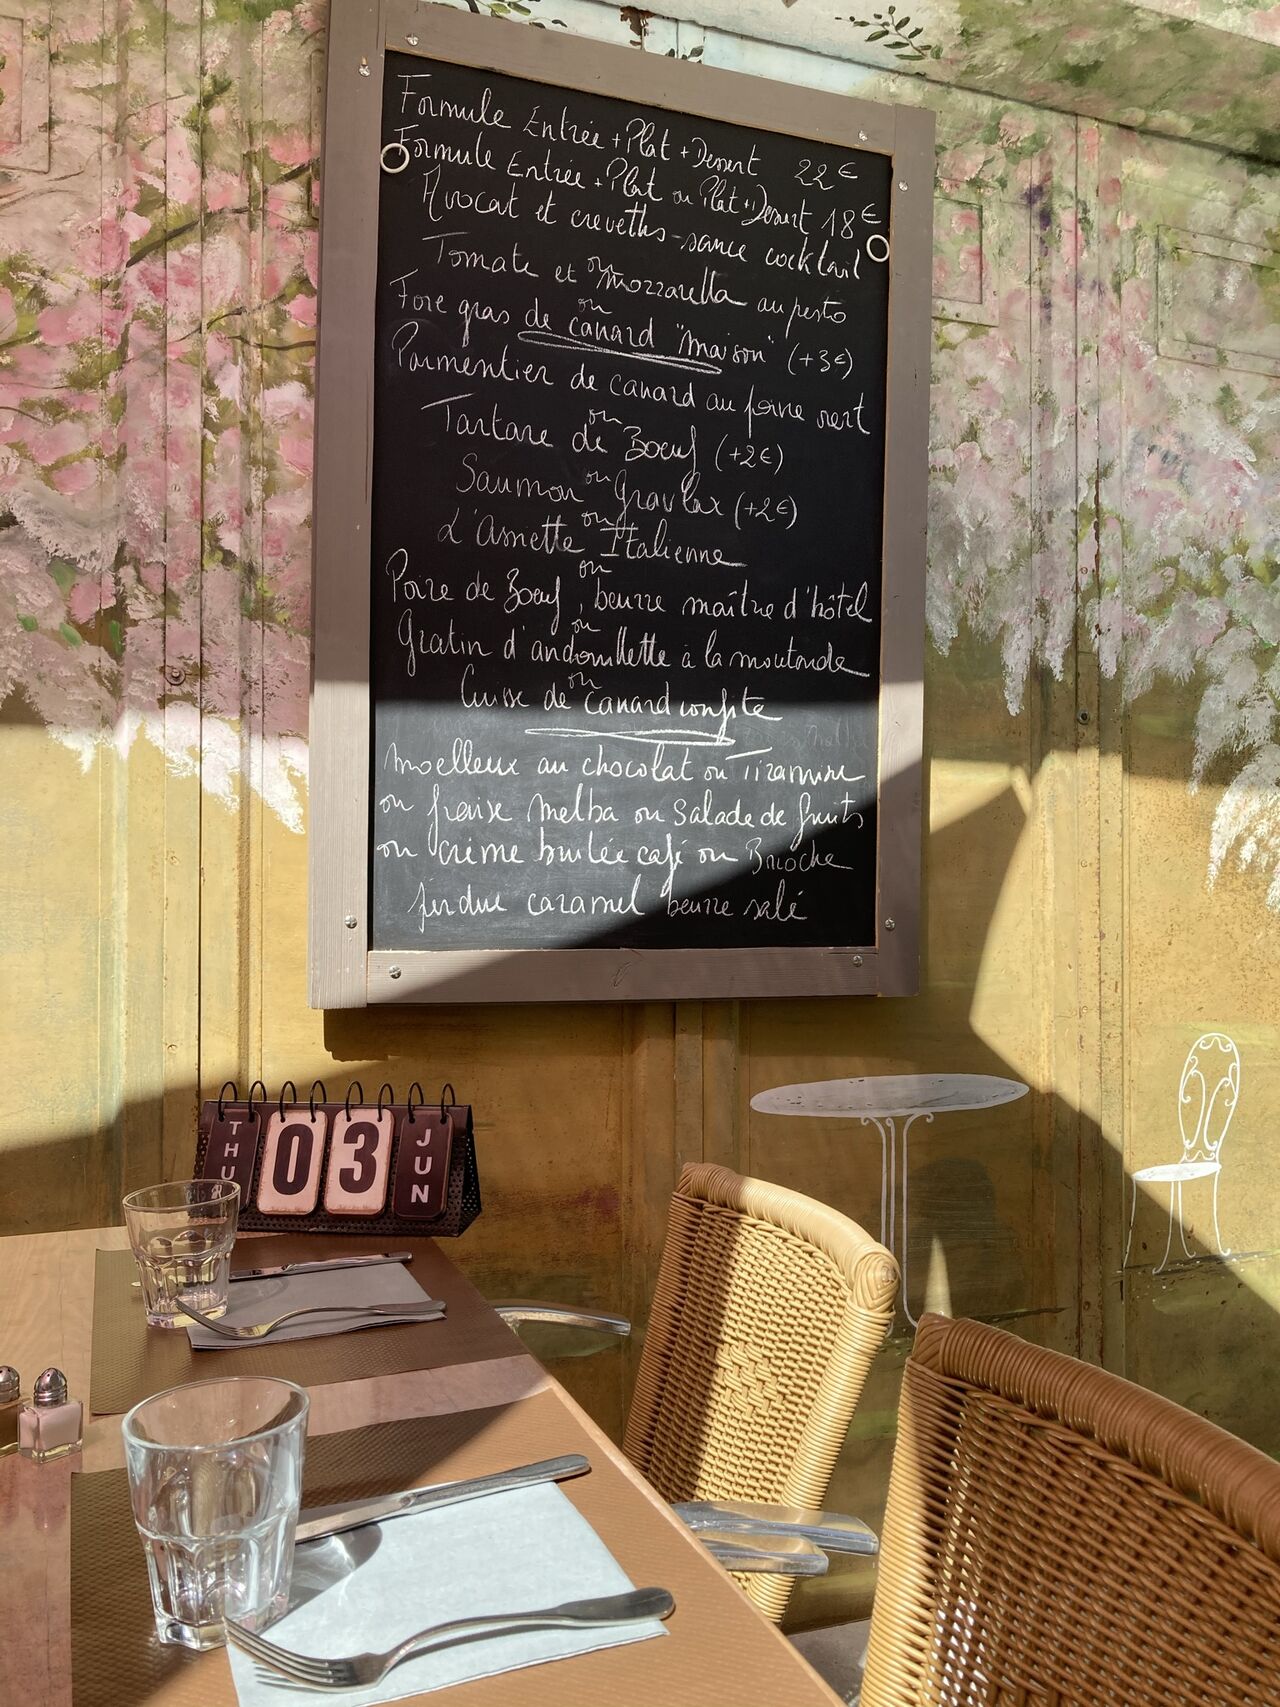 Formule Entrée + Plat + Dessert 22 €
Formule Entrée + Plat ou Plat + Dessert 18 €
Avocat et crevettes sauce cocktail
ou
Tomate et mozzarella au pesto
ou
Foie gras de canard "maison" (+3€)
Parmentier de canard au poivre vert
ou
Tartare de Boeuf (+2€)
ou
Saumon Gravlax (+2€)
ou
L'Assiette Italienne
ou
Poire de Boeuf, beurre maître d'hôtel
ou
Gratin d'andouillette à la moutarde
ou
Cuisse de canard confite
Moelleux au chocolat ou Tiramisu
ou fraise Melba ou Salade de fruits
ou crème brulée café ou Brioche
perdue caramel beurre salé
THU 03 JUN